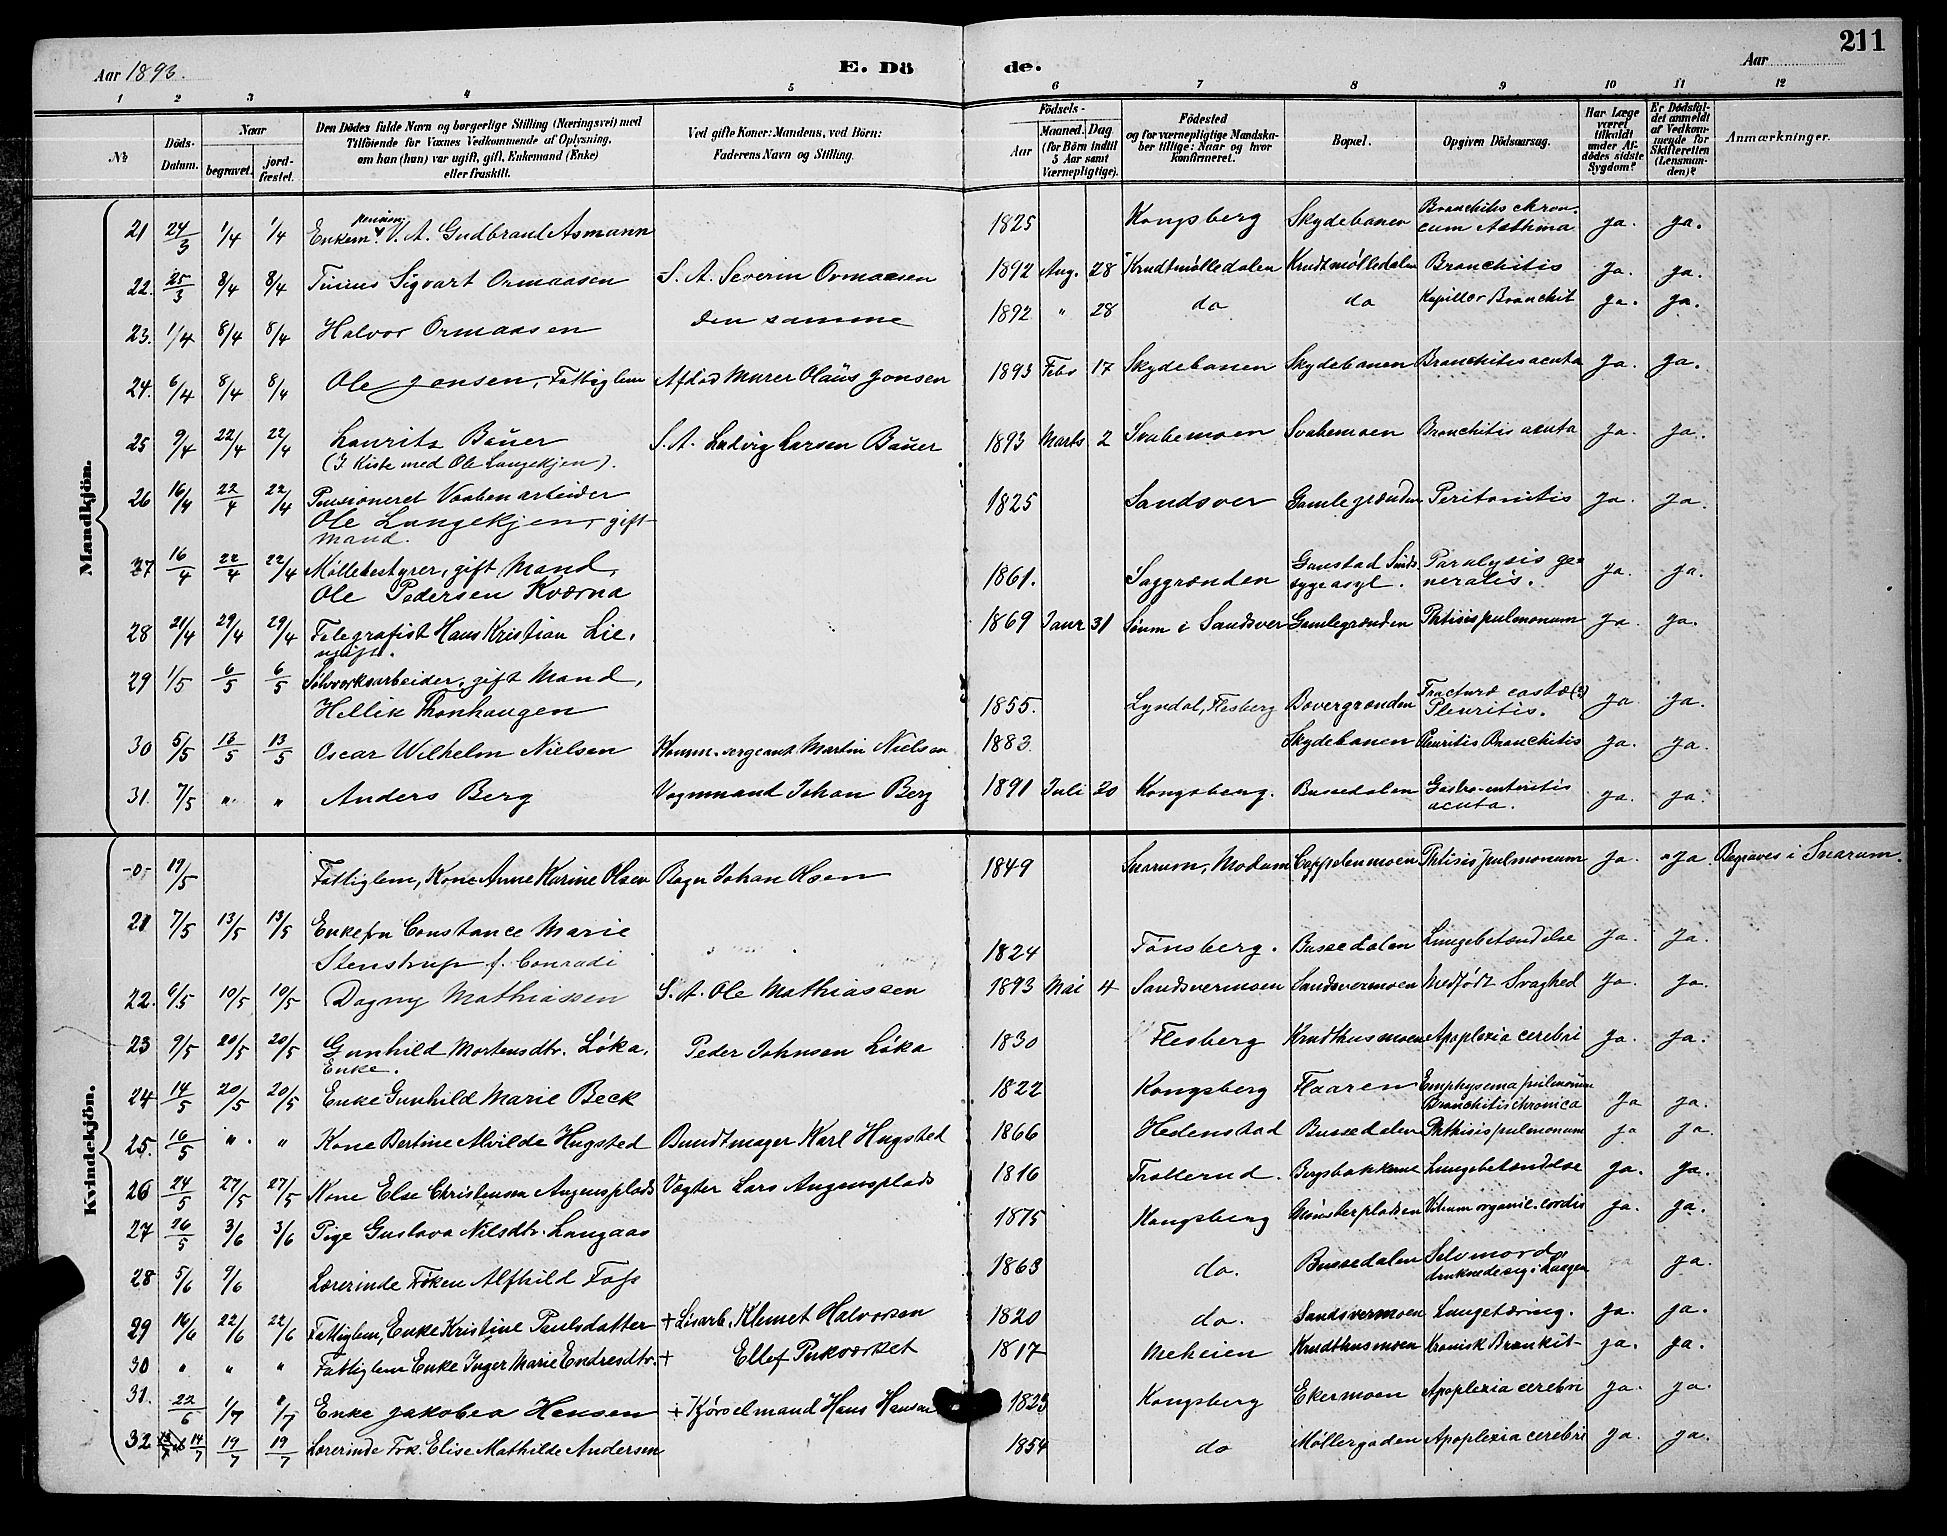 211
Aar 1893. E. Dö de. Aar
1 2 3 4 5 6 7 8 9 10 11 12
No
Döds-Datum.
Naar begravet. jordfæstet.
Den Dödes fulde Navn og borgerlige Stilling (Næringsvei) med
Tilföiende for Voxnes Vedkommende af Oplysning,
om han (hun) var ugift, gift, Enkemand (Enke)
eller fraskilt.
Ved gifte Koner: Mandens, ved Börn:
Faderens Navn og Stilling.
Födsels-
Aar Maaned. Dag
(for Börn indtil 5 Aar samt Værnepligtige).
Födested
og for værnepligtige Mandskaber tillige: Naar og hvor konfirmeret.
Bopæl.
Opgiven Dödsaarsag.
Har Læge været tilkaldt under Afdödes sidste Sygdom?
Er Dödsfaldet anmeldt af Vedkommende for Skifteretten (Lensmanden)?
Anmærkninger.
Mandkjön.
21 24/3 1/4 1/4 Enkem. pension. V. A. Gudbrand Asmann 1825 Kongsberg Skydebanen Bronchitis chronicum Asthma ja. ja.
22. 25/3 8/4 8/4 Tinius Sigvart Ormaasen S. A. Severin Ormaasen 1892 Aug. 28 Krudtmølledalen Krudtmølledalen Bronchitis ja. ja.
23. 1/4 8/4 8/4 Halvor Ormaasen den samme 1892 " 28 do do Kapillær Bronchit ja. ja.
24. 6/4 8/4 8/4 Ole Jensen, Fattiglem Afdød Murer Olaus Jonsen 1893 Febr 17 Skydebanen Skydebanen Bronchitis acuta ja. ja.
25 9/4 22/4 22/4 Laurits Bauer S. A. Ludvig Larsen Bauer 1893 Marts 2 Svabemoen Svabemoen Bronchitis acuta ja. ja.
(I Kiste med Ole Langekjen).
26 16/4 22/4 22/4 Pensioneret Vaabenarbeider 1825 Sandsver Gamlegrænden Peritonitis ja. ja.
Ole Langekjen, gift
mand.
27 16/4 22/4 22/4 Møllebestyrer, gift Mand, 1861. Saggrænden Gaustad Sindssygeasyl. Paralysis generalis. ja. ja.
Ole Pedersen Kværna
28 21/4 29/4 29/4 Telegrafist Hans Kristian Lie, 1869 Janr 31 Søum i Sandsver Gamlegrænden Phtisis pulmonum ja. ja.
ugift.
29 1/5 6/5 6/5 Sølvværksarbeider, gift Mand,
Hellik Thonhaugen 1855. Lyndal, Flesberg Bævergrænden Fractura costæ (?) Pleuritis. ja. ja.
30 5/5 13/5 13/5 Oscar Wilhelm Nielsen Komm. sergeant Martin Nielsen 1883 Skydebanen Pleuritis Bronchitis ja. ja.
31. 7/5 " " Anders Berg Vognmand Johan Berg 1891 Juli 20 Kongsberg. Bussedalen Gastro-enteritis acuta. ja. ja.
Kvindekjön.
-0- 19/5 Fattiglem, Kone Anne Karine Olsen Bager Johan Olsen 1849 Snarum, Modum Cappelenmoen Phtisis pulmonum ja. ja Begraves i Snarum.
21 7/5 13/5 13/5 Enkefru Constance Marie
Stenstrup f. Conradi 1824 Tønsberg. Bussedalen Lungebetændelse ja. ja.
22. 6/5 10/5 10/5 Dagny Mathiassen S. A. Ole Mathiassen 1893 Mai 4 Sandsvermoen Sandsvermoen Medfødt Svaghed ja. ja.
23 9/5 20/5 20/5 Gunhild Mortensdtr. Løka, Peder Johnsen Løka 1830 Flesberg Krudthusmoen Apoplexia cerebri ja. ja.
Enke.
24 14/5 20/5 20/5 Enke Gunhild Marie Beck 1822 Kongsberg Flaaren Emphysema pulmonum Bronchitis chronica ja ja.
25. 16/5 " " Kone Bertine Alvilde Hugsted Bundtmager Karl Hugsted 1866 Hedenstad Bussedalen Phthisis pulmonum ja ja.
26 24/5 27/5 27/5 Kone Else Christensen Augensplads Vægter Lars Augensplads 1816 Trollerud. Bergsbakkene Lungebetændelse ja. ja.
27 26/5 3/6 3/6 Pige Gustava Nilsdtr. Langaas 1875 Kongsberg Mønsterpladsen Vitium organic. cordis ja. ja.
28 5/6 9/6 Lærerinde Frøken Alfhild Foss 1863 do. Bussedalen Selvmord, druknede sig i Laagen ja.
29 16/6 22/6 22/6 Fattiglem, Enke Kristine Paulsdatter + Løsarb. Klemet Halvorsen 1820 do. Sandsvermoen Lungetæring. ja. ja.
30 " " " Fattiglem Enke Inger Marie Endresdtr. + Ellef Pukværket 1817 Meheien Krudthusmoen Kronisk Bronkit ja. ja.
31. 22/6 1/7 1/7 Enke Jakobea Hansen + Kjørselmand Hans Hansen 1823 Kongsberg Ekermoen Apoplexia cerebri ja. ja.
32 14/7 19/7 19/7 Lærerinde Frk. Elise Mathilde Andersen 1854 do Møllergaden Apoplexia cerebri ja. ja.